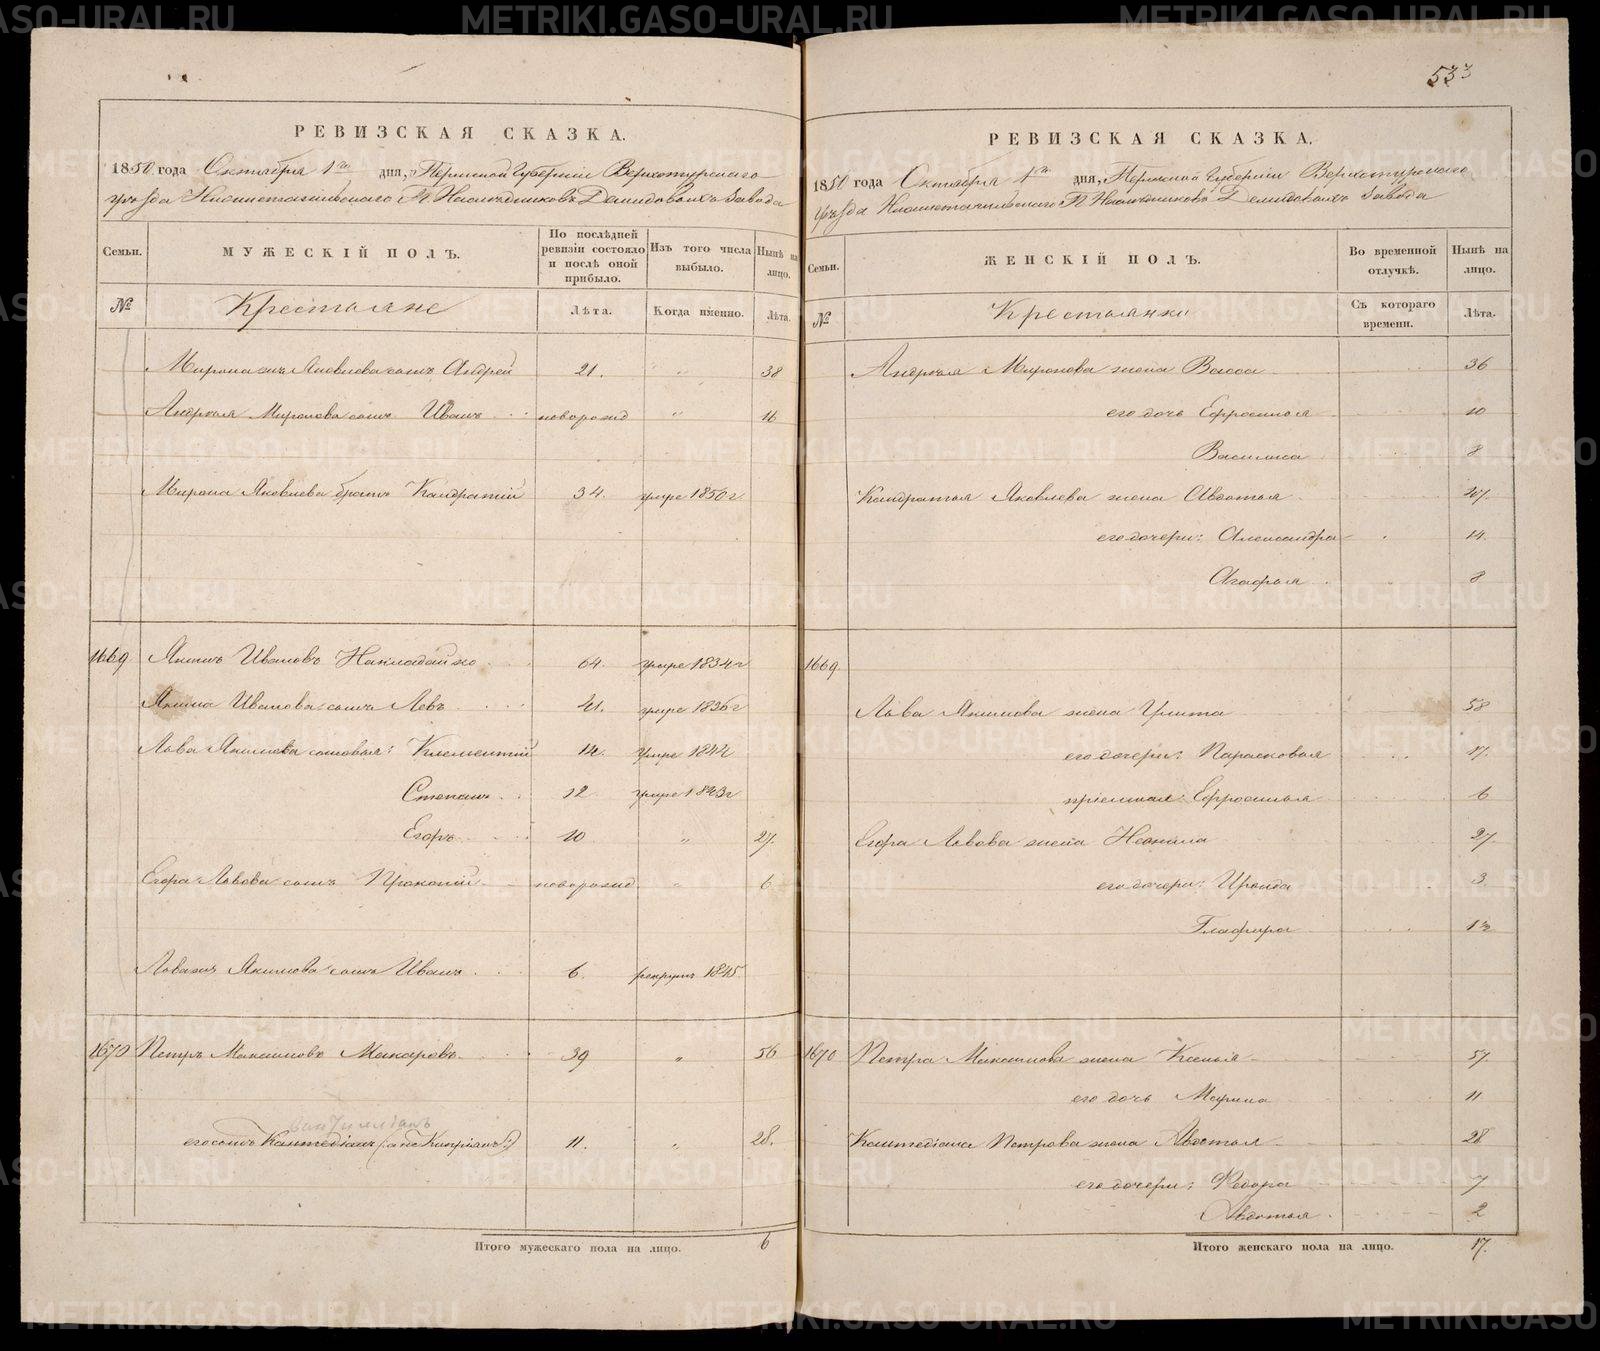 533
РЕВИЗСКАЯ СКАЗКА.
1850 года Октября 1го дня, Пермской Губернiи Верхотурскаго
уѣзда Нижнетагильскаго Г. Наслѣдниковъ Демидовыхъ Завода
Семьи.
МУЖЕСКIЙ ПОЛЪ.
По послѣдней ревизiи состояло и послѣ оной прибыло.
Изъ того числа выбыло.
Нынѣ на лицо.
№
Крестьяне
Лѣта.
Когда именно.
Лѣта.
Мирона Яковлева сынъ Андрей 21. " 38
Андрея Миронова сынъ Иванъ новорожд " 16
Мирона Яковлева братъ Кондратiй 34. умре 1850 г
1669 Якимъ Ивановъ 64. умре 1834 г
Якима Иванова сынъ Левъ 41. умре 1836 г
Льва Якимова сыновья: Клементiй 14. умре 1844
Степанъ 12 умре 1843 г
Егоръ 10 " 27.
Егора Львова сынъ Прокопiй новорожд. " 6
Якимова сынъ Иванъ 6. рекрутъ 1845
1670 Петръ Максимовъ Макаровъ 39 " 56
его сынъ (: а не Кипрiянъ :) 11. " 28.
Итого мужескаго пола на лицо. 6
РЕВИЗСКАЯ СКАЗКА.
1850 года Октября 1го дня, Пермской Губернiи Верхотурскаго
уѣзда Нижнетагильскаго Г. Наслѣдниковъ Демидовыхъ Завода
Семьи.
ЖЕНСКIЙ ПОЛЪ.
Во временной отлучкѣ.
Нынѣ на лицо.
№
Крестьянки
Съ котораго времени.
Лѣта.
Андрея Миронова жена Васса 36
его дочь Ефросинья 10
Василиса 8
Кондратья Яковлева жена Авдотья 47.
его дочери: Александра 14.
Агафья 8
1669.
Льва Якимова жена Улита 58
его дочери: Парасковья 17.
Ефросинья 6
Егора Львова жена Неонила 27
его дочери: Ираида 3
Глафира
1670 Петра Максимова жена Ксенья 57.
его дочь Марина 11
Петрова жена Авдотья 28
его дочери: Федора 7
Авдотья 2
Итого женскаго пола на лицо. 17.
METRIKI.GASO-URAL.RU